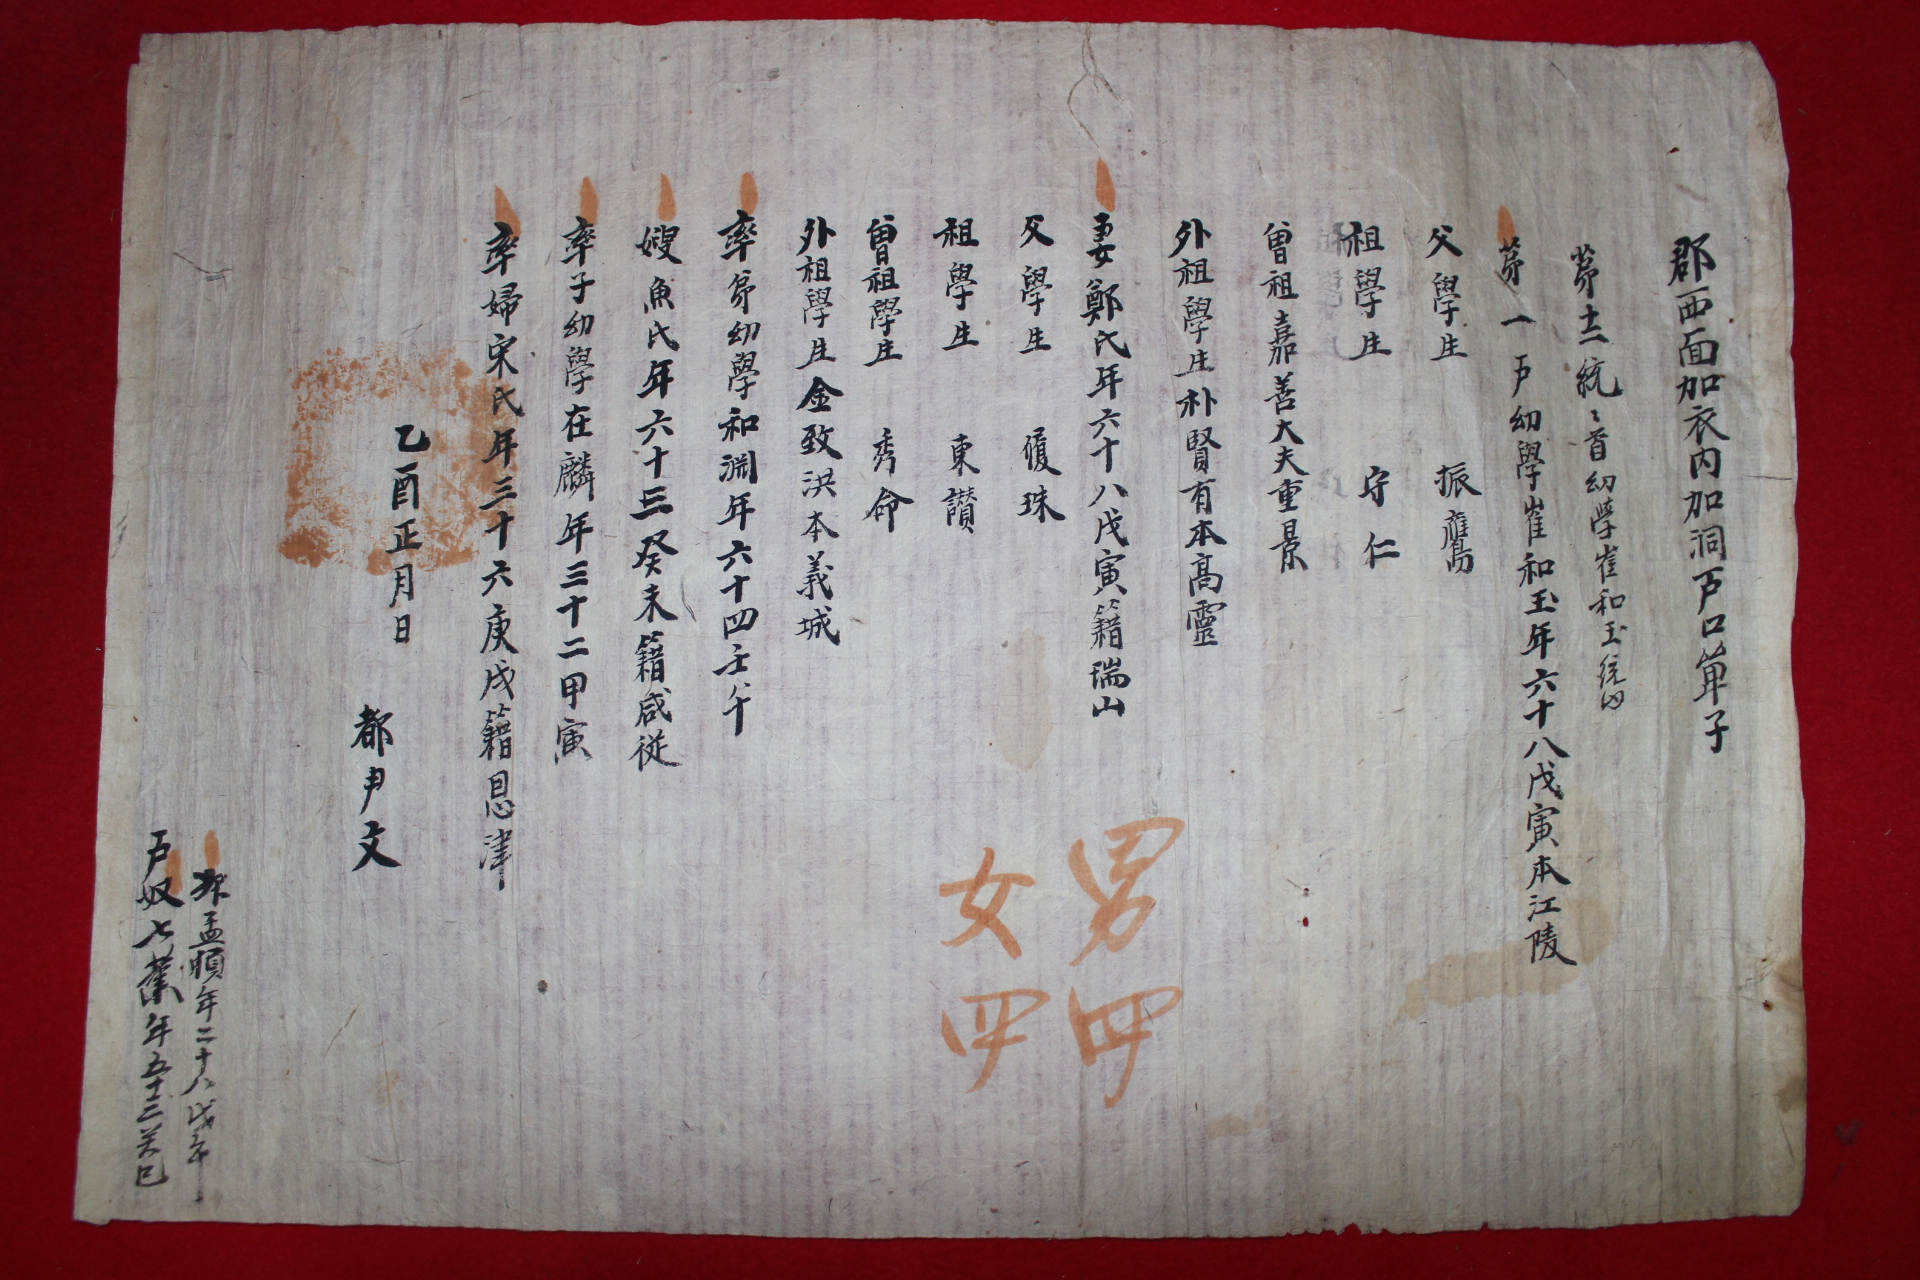 郡西面加衣内加洞戸口單子
第十二統〻首幼學崔和玉統内
第一戸幼學崔和玉年六十八戊寅本江陵
父學生振鷹
祖學生守仁
曾祖嘉善大夫重景
外祖學生朴賢有本高靈
妻鄭氏年六十八戊寅籍瑞山
父學生復珠
祖學生東讃
曾祖學生秀命
外祖學生金致洪本義城
率弟幼學和渊年六十四壬午
嫂魚氏年六十三癸未籍咸從
率子幼學在麟年三十二甲寅
率婦宋氏年三十六庚戌籍恩津
乙酉正月日
都尹文
孟順年二十八戊午
戸奴七 年五十三癸巳
男四
女四